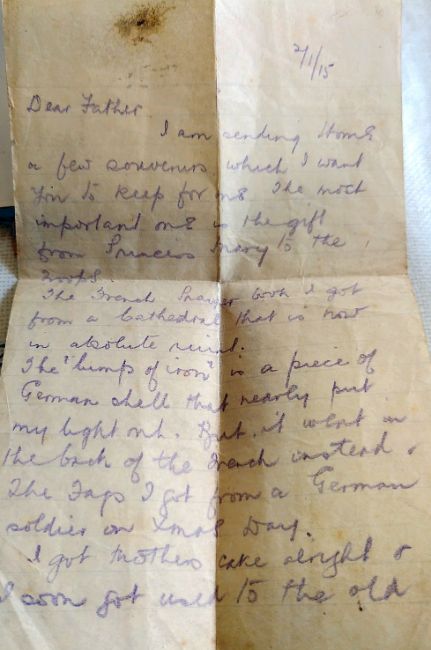 2/1/15
Dear Father
I am sending Home
a few souvenirs which I want
you to keep for me The most
important one is the gift
from Princess Mary to the
Troops.
The French Prayer book I got
from a Cathedral that is now
in absolute ruins.
The "lumps of iron" is a piece of
German shell that nearly put
my light out. But it went in
the back of the trench instead &
The Fags I got from a German
soldier on Xmas Day.
I got Mothers cake alright &
I soon got used to the old